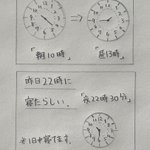 「朝10時」
「昼13時」
昨日22時に
寝たらしい。
「夜22時30分」
※1日中寝てます。